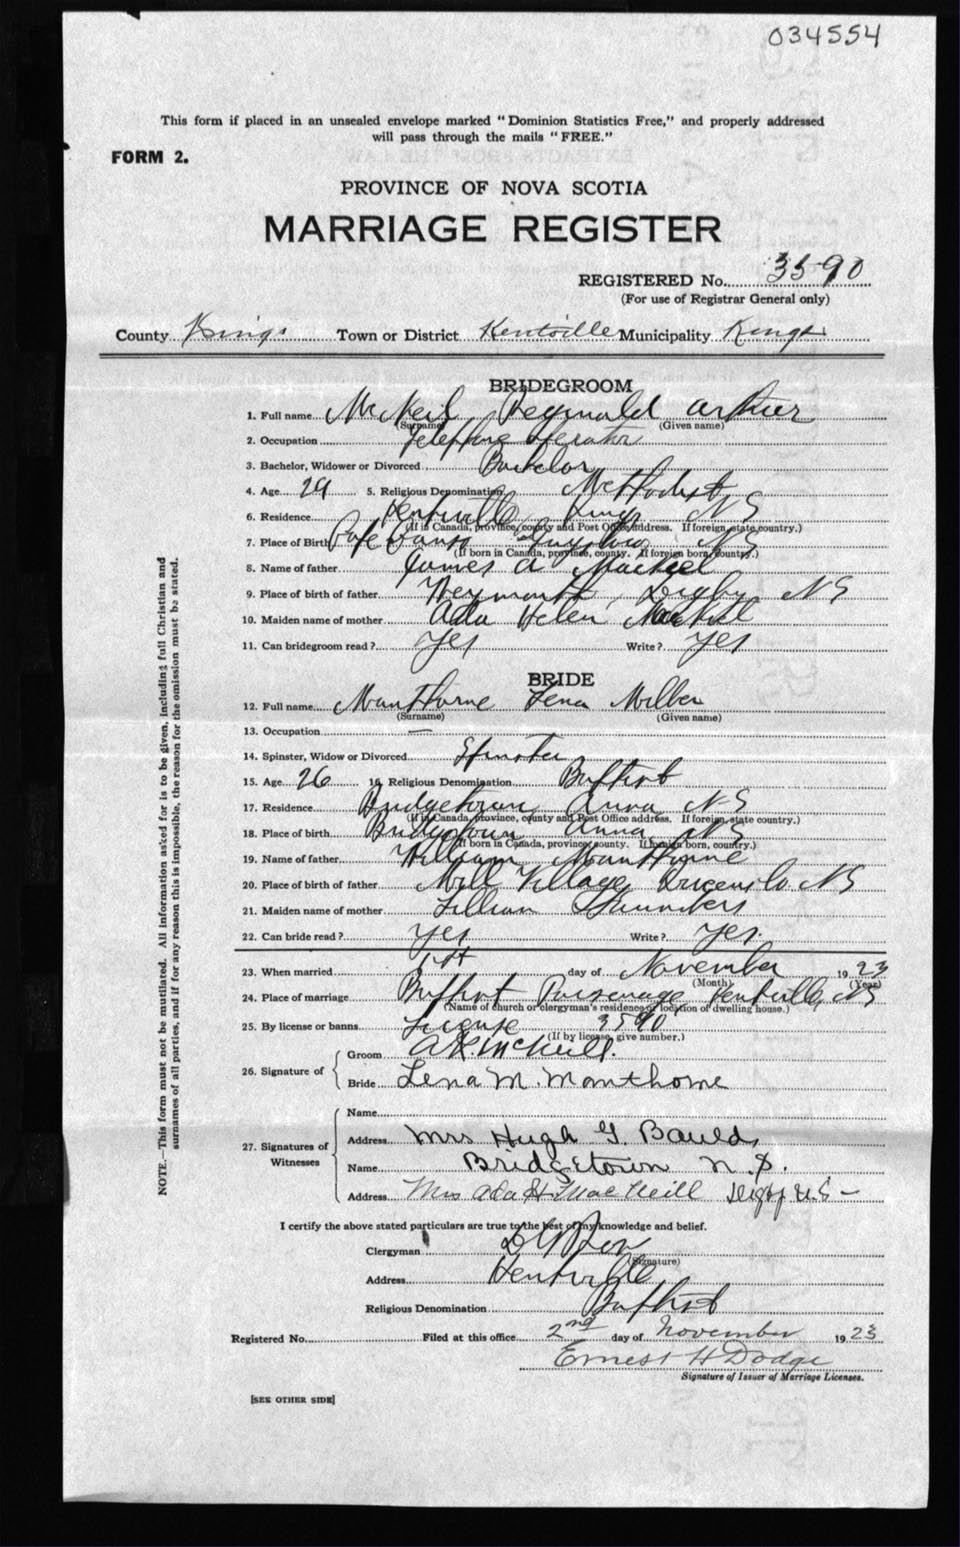 034554
This form if placed in an unsealed envelope marked "Dominion Statistics Free," and properly addressed
will pass through the mails "FREE."
FORM 2.
PROVINCE OF NOVA SCOTIA
MARRIAGE REGISTER
REGISTERED No. 3590
(For use of Registrar General only)
County Kings Town or District Kentville Municipality Kings
BRIDEGROOM
1. Full name McNeil Reginald Arthur
(Surname) (Given name)
2. Occupation Telephone Operator
3. Bachelor, Widower or Divorced Bachelor
4. Age 29 5. Religious Denomination Methodist
6. Residence Kentville Kings N S
(If in Canada, province, county and Post Office address. If foreign, state country.)
7. Place of Birth Canso N S
(If born in Canada, province, county. If foreign born, country.)
8. Name of father James A
9. Place of birth of father Weymouth, Digby N S
10. Maiden name of mother Ada Helen
11. Can bridegroom read? Yes Write? Yes
BRIDE
12. Full name Manthorne Lena
(Surname) (Given name)
13. Occupation —
14. Spinster, Widow or Divorced Spinster
15. Age 26 16. Religious Denomination Baptist
17. Residence Bridgetown Anna N-S
(If in Canada, province, county and Post Office address. If foreign, state country.)
18. Place of birth Bridgetown Anna. NS
(If born in Canada, province, county. If foreign born, country.)
19. Name of father William Manthorne
20. Place of birth of father Mill Village Queens Co. NS
21. Maiden name of mother Lillian Saunders
22. Can bride read? Yes Write? Yes.
23. When married 1st day of November 1923
(Month) (Year)
24. Place of marriage Baptist Parsonage Kentville, NS
(Name of church or clergyman's residence or location of dwelling house.)
25. By license or banns License 3590
(If by license, give number.)
26. Signature of
Groom A R McNeill.
Bride Lena M. Manthorne
27. Signatures of Witnesses
Name
Address Mrs Hugh G. Bauld,
Name Bridgetown N.S.
Address Mrs Ada H MacNeill Digby N.S –
I certify the above stated particulars are true to the best of my knowledge and belief.
Clergyman
(Signature)
Address Kentville
Religious Denomination Baptist
Registered No. Filed at this office 2nd day of November 1923
Ernest H Dodge
Signature of Issuer of Marriage Licenses.
[SEE OTHER SIDE]
NOTE.—This form must not be mutilated. All information asked for is to be given, including full Christian and
surnames of all parties, and if for any reason this is impossible, the reason for the omission must be stated.